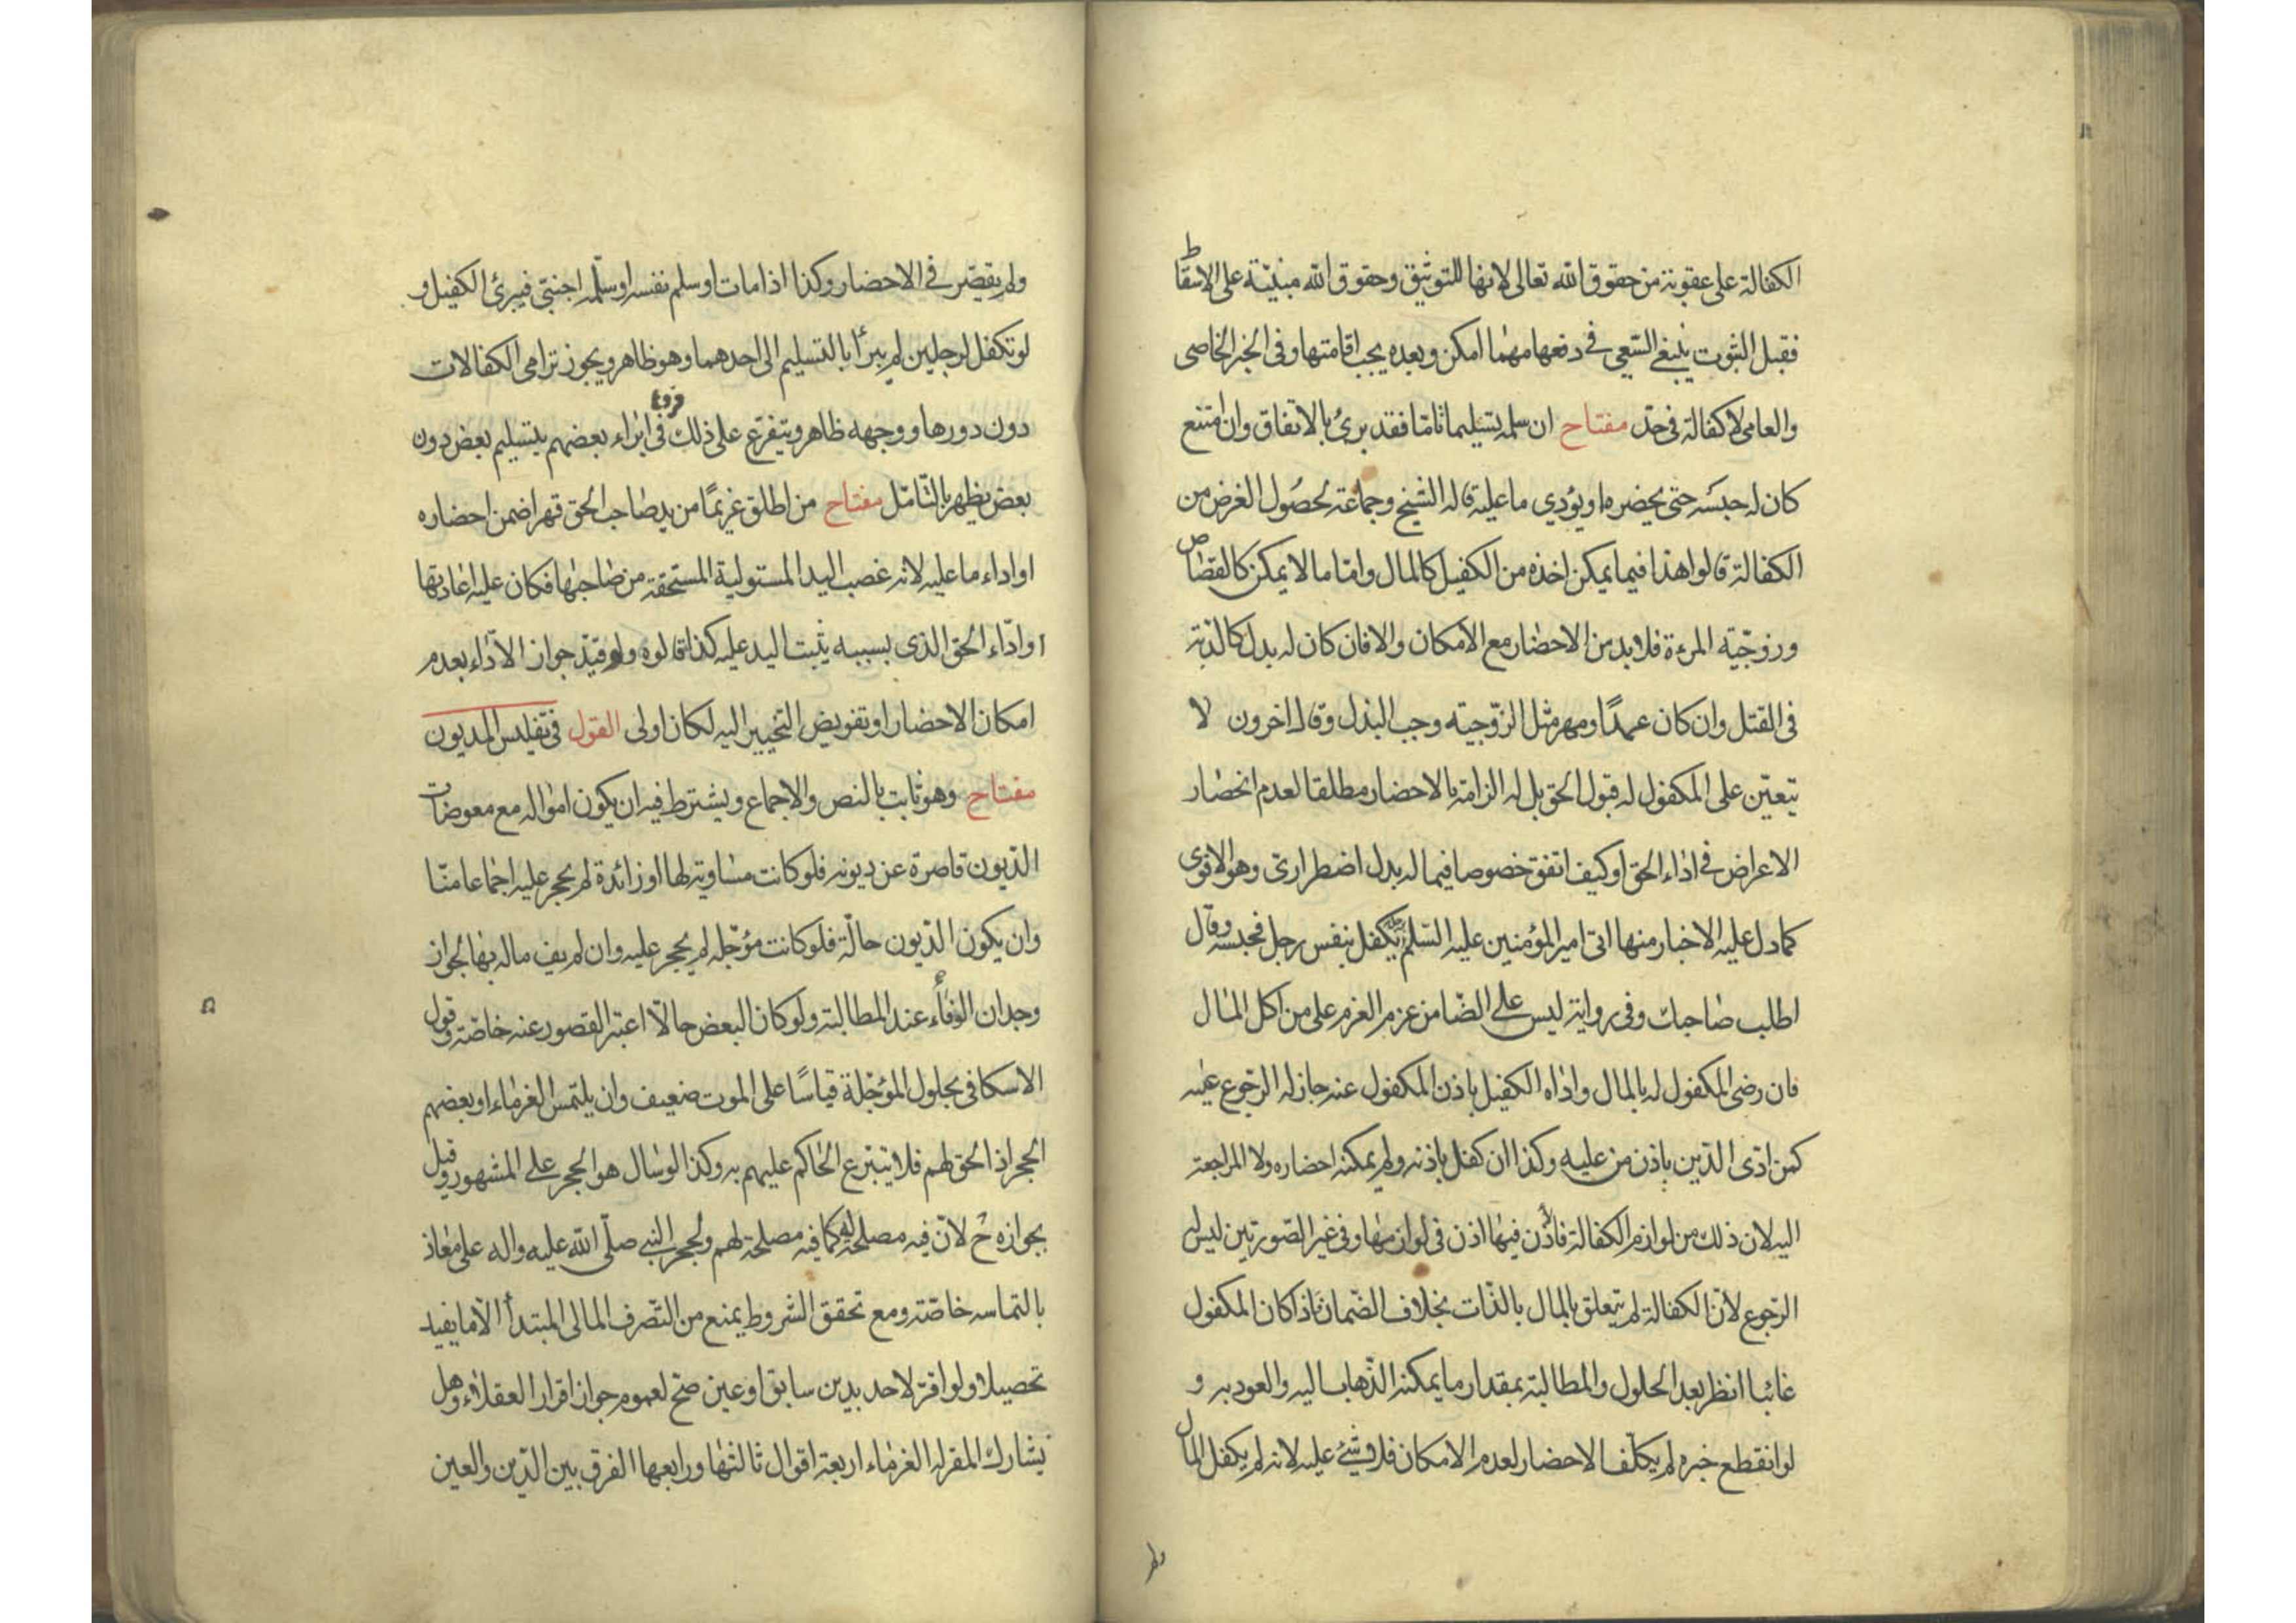 الكفالة على عقوبة من حقوق الله تعالى لانها للتوثيق وحقوق الله مبنيّة على الاسقاط
فقبل الثبوت ينبغي السّعي في دفعها مهما امكن وبعده يجب اقامتها وفي الخبر الخاصي
والعامي لا كفالة في حدّ مفتاح ان سلمه تسليما تامّا فقد برئ بالاتفاق وان امتنع
كان له حبسه حتى يحضره او يؤدي ما عليه قاله الشيخ وجماعة لحصول الغرض من
الكفالة قالوا هذا فيما يمكن اخذه من الكفيل كالمال وامّا ما لا يمكن كالقصاص
وزوجّية المرءة فلا بد من الاحضار مع الامكان والا فان كان له بدل كالدّية
في القتل وان كان عمدًا ومهر مثل الزّوجيّه وجب البذل وقال اخرون لا
يتعيّن على المكفول له قبول الحق بل له الزامه بالاحضار مطلقا لعدم انحصار
الاعراض في اداء الحق او كيف اتفق خصوصا فيما له بدل اضطراريّ وهو الاقوى
كما دل عليه الاخبار منها اتى امير المؤمنين عليه السّلم برجل تكفل بنفس رجل فحبسه وقال
اطلب صاحبك وفي رواية ليس على الضّامن غرم الغرم على من اكل المال
فان رضى المكفول له بالمال واداه الكفيل باذن المكفول عنه جاز له الرّجوع عليه
كمن ادّى الدّين باذن من عليه وكذا ان كفل باذنه ولم يمكنه احضاره ولا المراجعة
اليه لان ذلك من لوازم الكفالة فالأذن فيها اذن في لوازمها وفي غير الصّورتين ليس له
الرّجوع لأنّ الكفالة لم يتعلق بالمال بالذّات بخلاف الضّمان فاذا كان المكفول
غائبا انظر بعد الحلول والمطالبة بمقدار ما يمكنه الذّهاب اليه والعود به و
لو انقطع خبره لم يكلّف الاحضار لعدم الامكان فلا شيئ عليه لانه لم يكفل المال
ولم
ولم يقصّر في الاحضار وكذا اذا مات او سلم نفسه او سلّمه اجنبيّ فيبرئ الكفيل و
لو تكفل لرجلين لم يبرأ بالتسليم الى احدهما وهو ظاهر ويجوز ترامى الكفالات
دون دورها ووجهه ظاهر ويتفرّع على ذلك فروع في ابراء بعضهم بتسليم بعض دون
بعض يظهر بالتّامّل مفتاح من اطلق غريمًا من يد صاحب الحق قهرا ضمن احضاره
او اداء ما عليه لانه غصب اليد المستولية المستحقة من صاحبها فكان عليه اعادتها
او ادّاء الحق الذى بسببه يثبت اليد عليه كذا قالوه ولو قيّد جواز الادّاء بعدم
امكان الاحضار او تفويض التخيير اليه لكان اولى القول في تفليس المديون
مفتاح وهو ثابت بالنص والاجماع ويشترط فيه ان يكون امواله مع معوضات
الدّيون قاصرة عن ديونه فلو كانت مساوية لها او زائدة لم يحجر عليه اجماعا منّا
وان يكون الدّيون حالّة فلو كانت مؤجّله لم يحجر عليه وان لم يف ماله بها لجواز
وجدان الوفاء عند المطالبة ولو كان البعض حالّا اعتبر القصور عنه خاصّة وقول
الاسكافي بحلول المؤجّلة قياسًا على الموت ضعيف وان يلتمس الغرماء او بعضهم
الحجر اذ الحق لهم فلا يتبرع الحاكم عليهم به وكذا لو سال هو الحجر على المشهور وقيل
بجوازه ح لانّ فيه مصلحة له كما فيه مصلحة لهم ولحجر النبي صلّى الله عليه واله على معاذ
بالتماسه خاصّة ومع تحقق الشروط يمنع من التّصرف المالى المبتدأ الّا ما يفيد
تحصيلا ولو اقرّ لاحد بدين سابق او عين صحّ لعموم جواز اقرار العقلاء وهل
يشارك المقر له الغرماء اربعة اقوال ثالثها ورابعها الفرق بين الدّين والعين